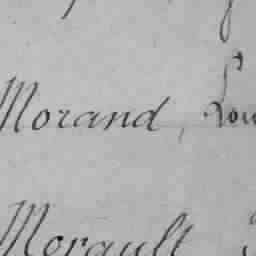 Morand, Lou
Morault